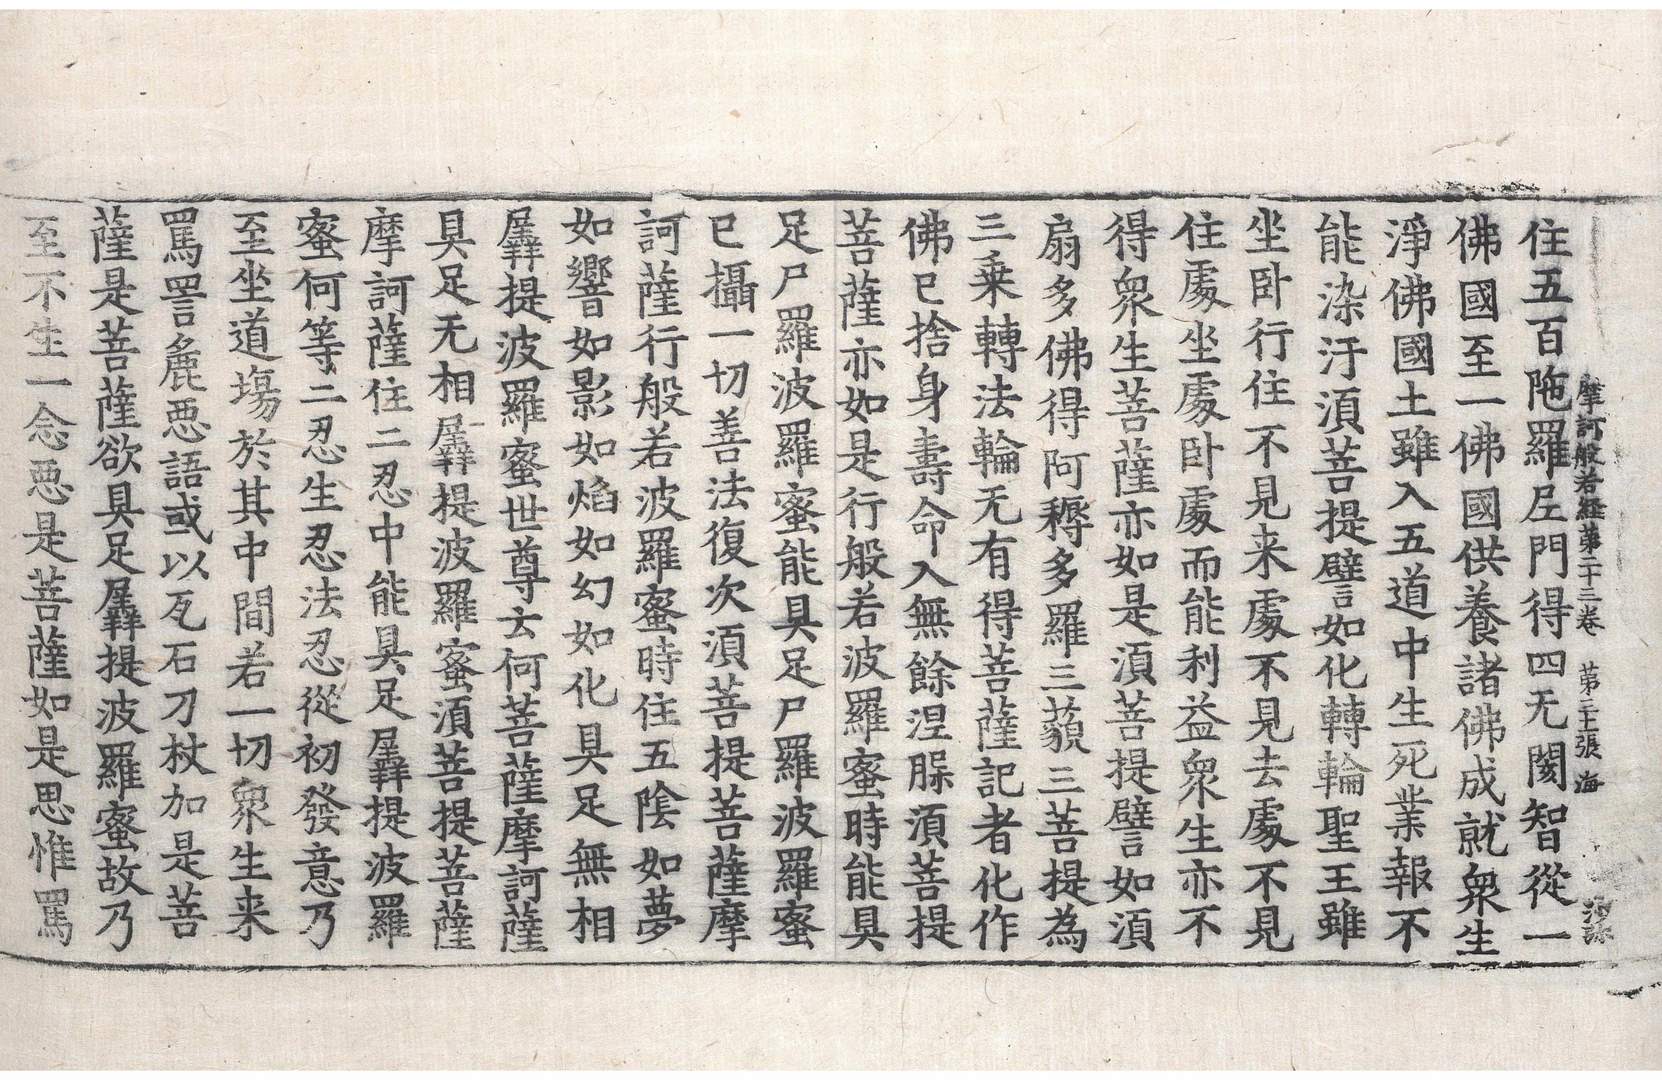 摩訶般若經第二十三卷　苐二十張　海
住五百陁羅尼門得四无閡智從一
佛國至一佛國供養諸佛成就衆生
淨佛國土雖入五道中生死業報不
能染汙湏菩提譬如化轉輪聖王雖
坐卧行住不見来處不見去處不見
住處坐處卧處而能利益衆生亦不
得衆生菩薩亦如是湏菩提譬如湏
扇多佛得阿耨多羅三藐三菩提為
三乗轉法輪无有得菩薩記者化作
佛已捨身壽命入無餘涅脲湏菩提
菩薩亦如是行般若波羅蜜時能具
足尸羅波羅蜜能具足尸羅波羅蜜
已攝一切善法復次湏菩提菩薩摩
訶薩行般若波羅蜜時住五隂如夢
如響如影如焰如幻如化具足無相
羼提波羅蜜世尊云何菩薩摩訶薩
具足无相羼提波羅蜜湏菩提菩薩
摩訶薩住二忍中能具足羼提波羅
蜜何等二忍生忍法忍從初發意乃
至坐道塲於其中間若一切衆生来
罵詈麁惡語或以瓦石刀杖加是菩
薩是菩薩欲具足羼提波羅蜜故乃
至不生一念惡是菩薩如是思惟罵